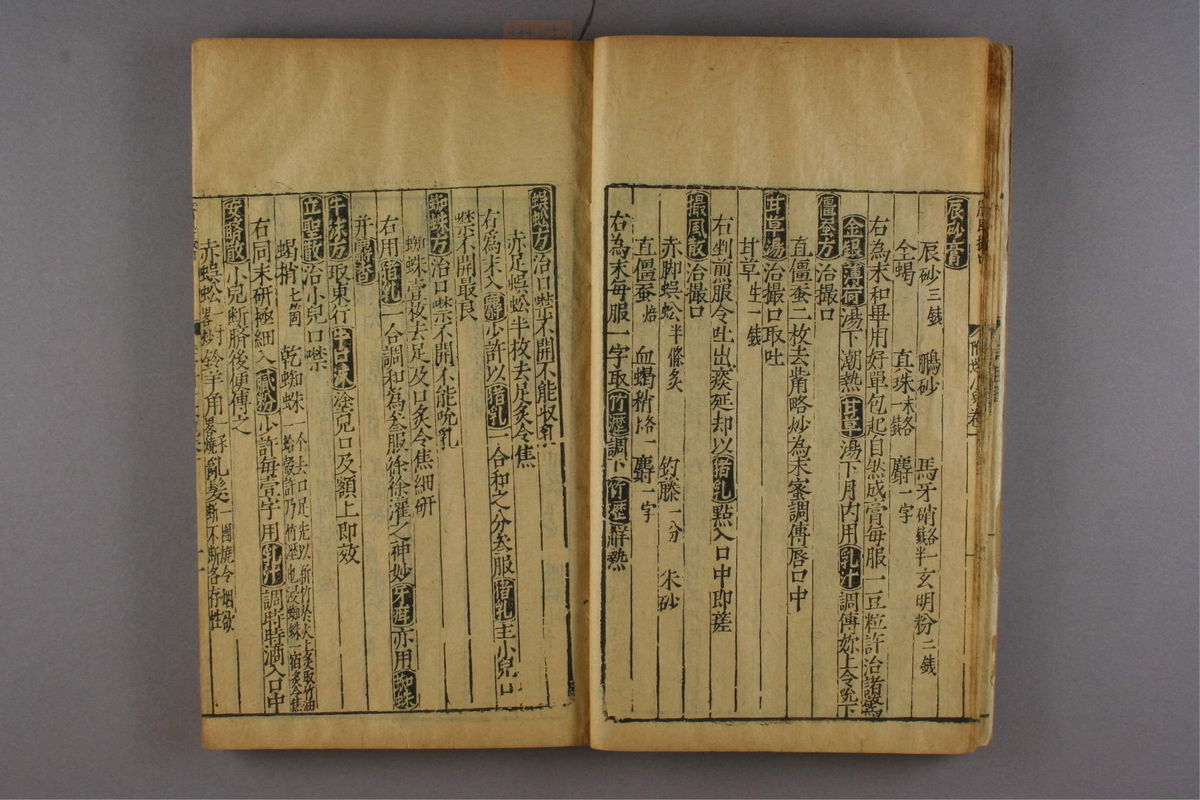 辰砂膏
辰砂三錢 鵬砂 馬牙硝各一錢半 玄明粉二錢
全蝎 真珠末各一錢 麝一字
右為末和畢用好單包起自然成膏每服一豆粒許治諸驚
金銀薄荷湯下潮熱甘草湯下月內用乳汁調傅妳上令吮下
僵蚕方治撮口
直僵蚕二枚去觜略炒為末蜜調傅唇口中
甘草湯治撮口取吐
甘草生一錢
右剉煎服令吐出痰延却以猪乳點入口中即瘥
撮風散治撮口
赤脚蜈蚣半條炙 釣藤一分 朱砂
直僵蚕焙 血蝎稍各一 麝一字
右為末每服一字取竹瀝調下竹瀝解熱
蜈蚣方治口噤不開不能收乳
赤足蜈蚣半枚去足炙令焦
右為末入麝少許以猪乳一合和之分叁服猪乳主小兒口
噤不開最良
蜘蛛方治口噤不開不能吮乳
蜘蛛壹枚去足及口炙令焦細研
右用猪乳一合調和為叁服徐徐灌之神妙牙疳亦用蜘蛛
并麝香
牛涎方取東行牛口沫塗兒口及額上即效
立聖散治小兒口噤
蝎梢七箇 乾蜘蛛一个去口足先以新竹於火上炙取竹油一蛤殼許乃竹瀝也浸蜘蛛一宿炙令焦
右同末研極細入膩粉少許每壹字用乳汁調時時滴入口中
安臍散小兒斷臍後便傅之
赤蜈蚣一对畧炒 鈴羊角一子畧燒 亂髮一團燒令烟欲斷不斷各存性